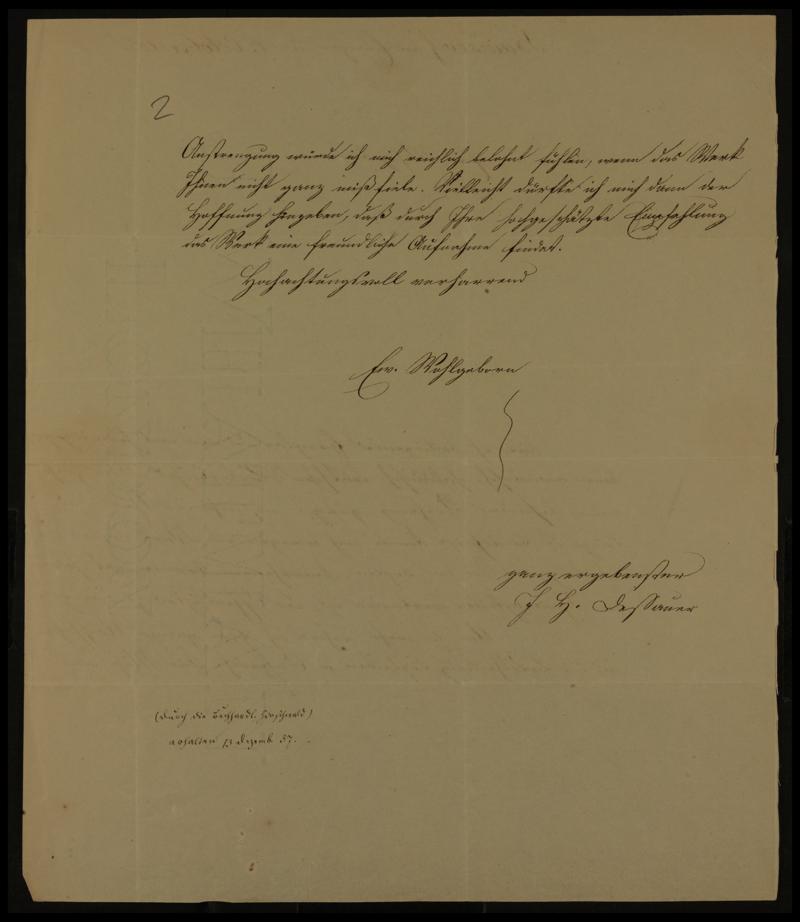 2
Anstrengung würde ich mich reichlich belohnt fühlen, wenn das Werk
Ihnen nicht ganz mißfiele. Vielleicht dürfte ich mich dann der
Hoffnung hingeben, daß durch Ihre hochgeschätzte Empfehlung
das Werk eine freundliche Aufnahme findet.
Hochachtungsvoll verharrend
Ew. Wohlgeborn
ganz ergebenster
J. H. Dessauer
(durch die Buchhandl. Hirschwald)
erhalten 13 Dezemb 37.